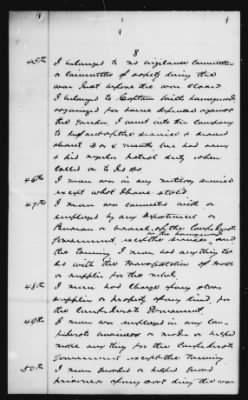 8
45th I belonged to no vigilance committee
or committee of safety during the
war Just before the war closed
I belonged to Captain Smith homeguards
organized for home defense against
the Yankees. I went into this company
to keep out of the service & served
about 3 or 4 months
& did duty when
called on to do so
46th I never was in any military service
except what I have stated
47th I never was connected with or
employed by any department or
Bureau or branch of the Confederate
Government, except the homeguard service, and
the tanning I never had anything to
do with the manufacture of
or supplies for the rebels
48th I never had charge of any stores
supplies or property of any kind, for
the Confederate Government,
49th I never was employed in any Con-
federate business or made or helped
make any thing for the Confederate
Government except the tanning
50th I never or helped
prisoner of any sort during the war